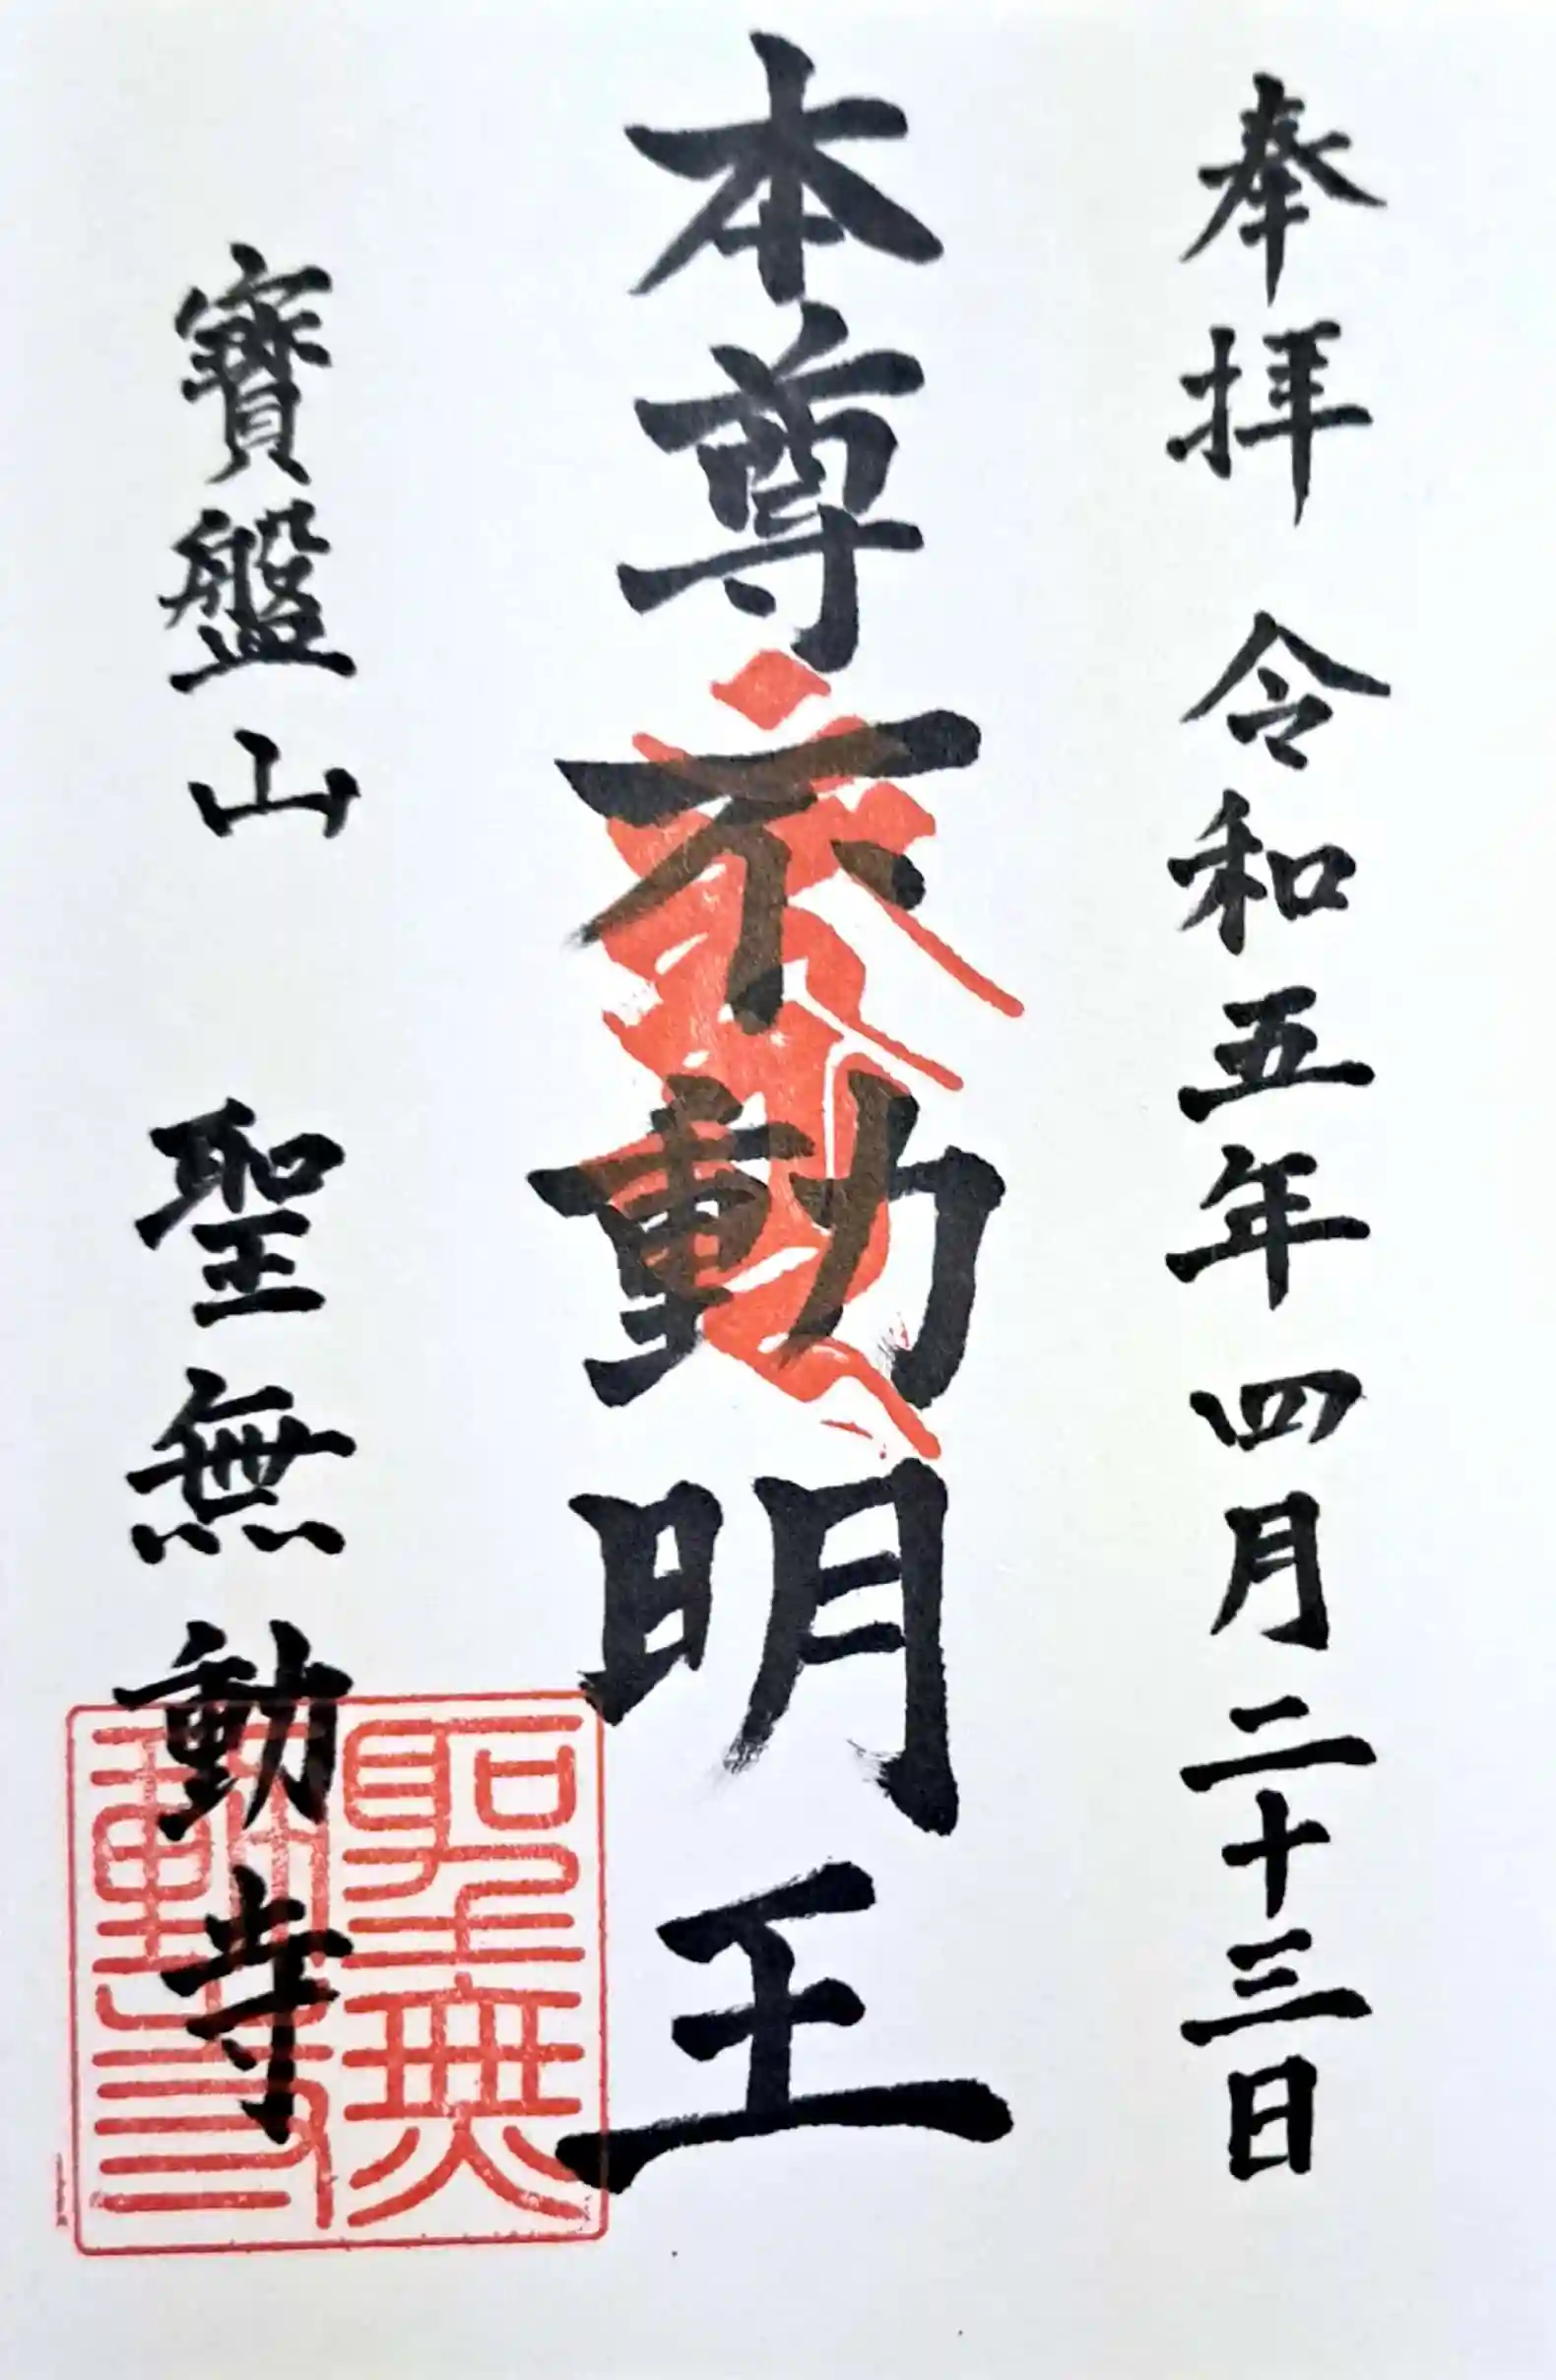 奉拝 令和五年四月二十三日
本尊不動明王
寳盤山 聖無動寺
聖無動寺